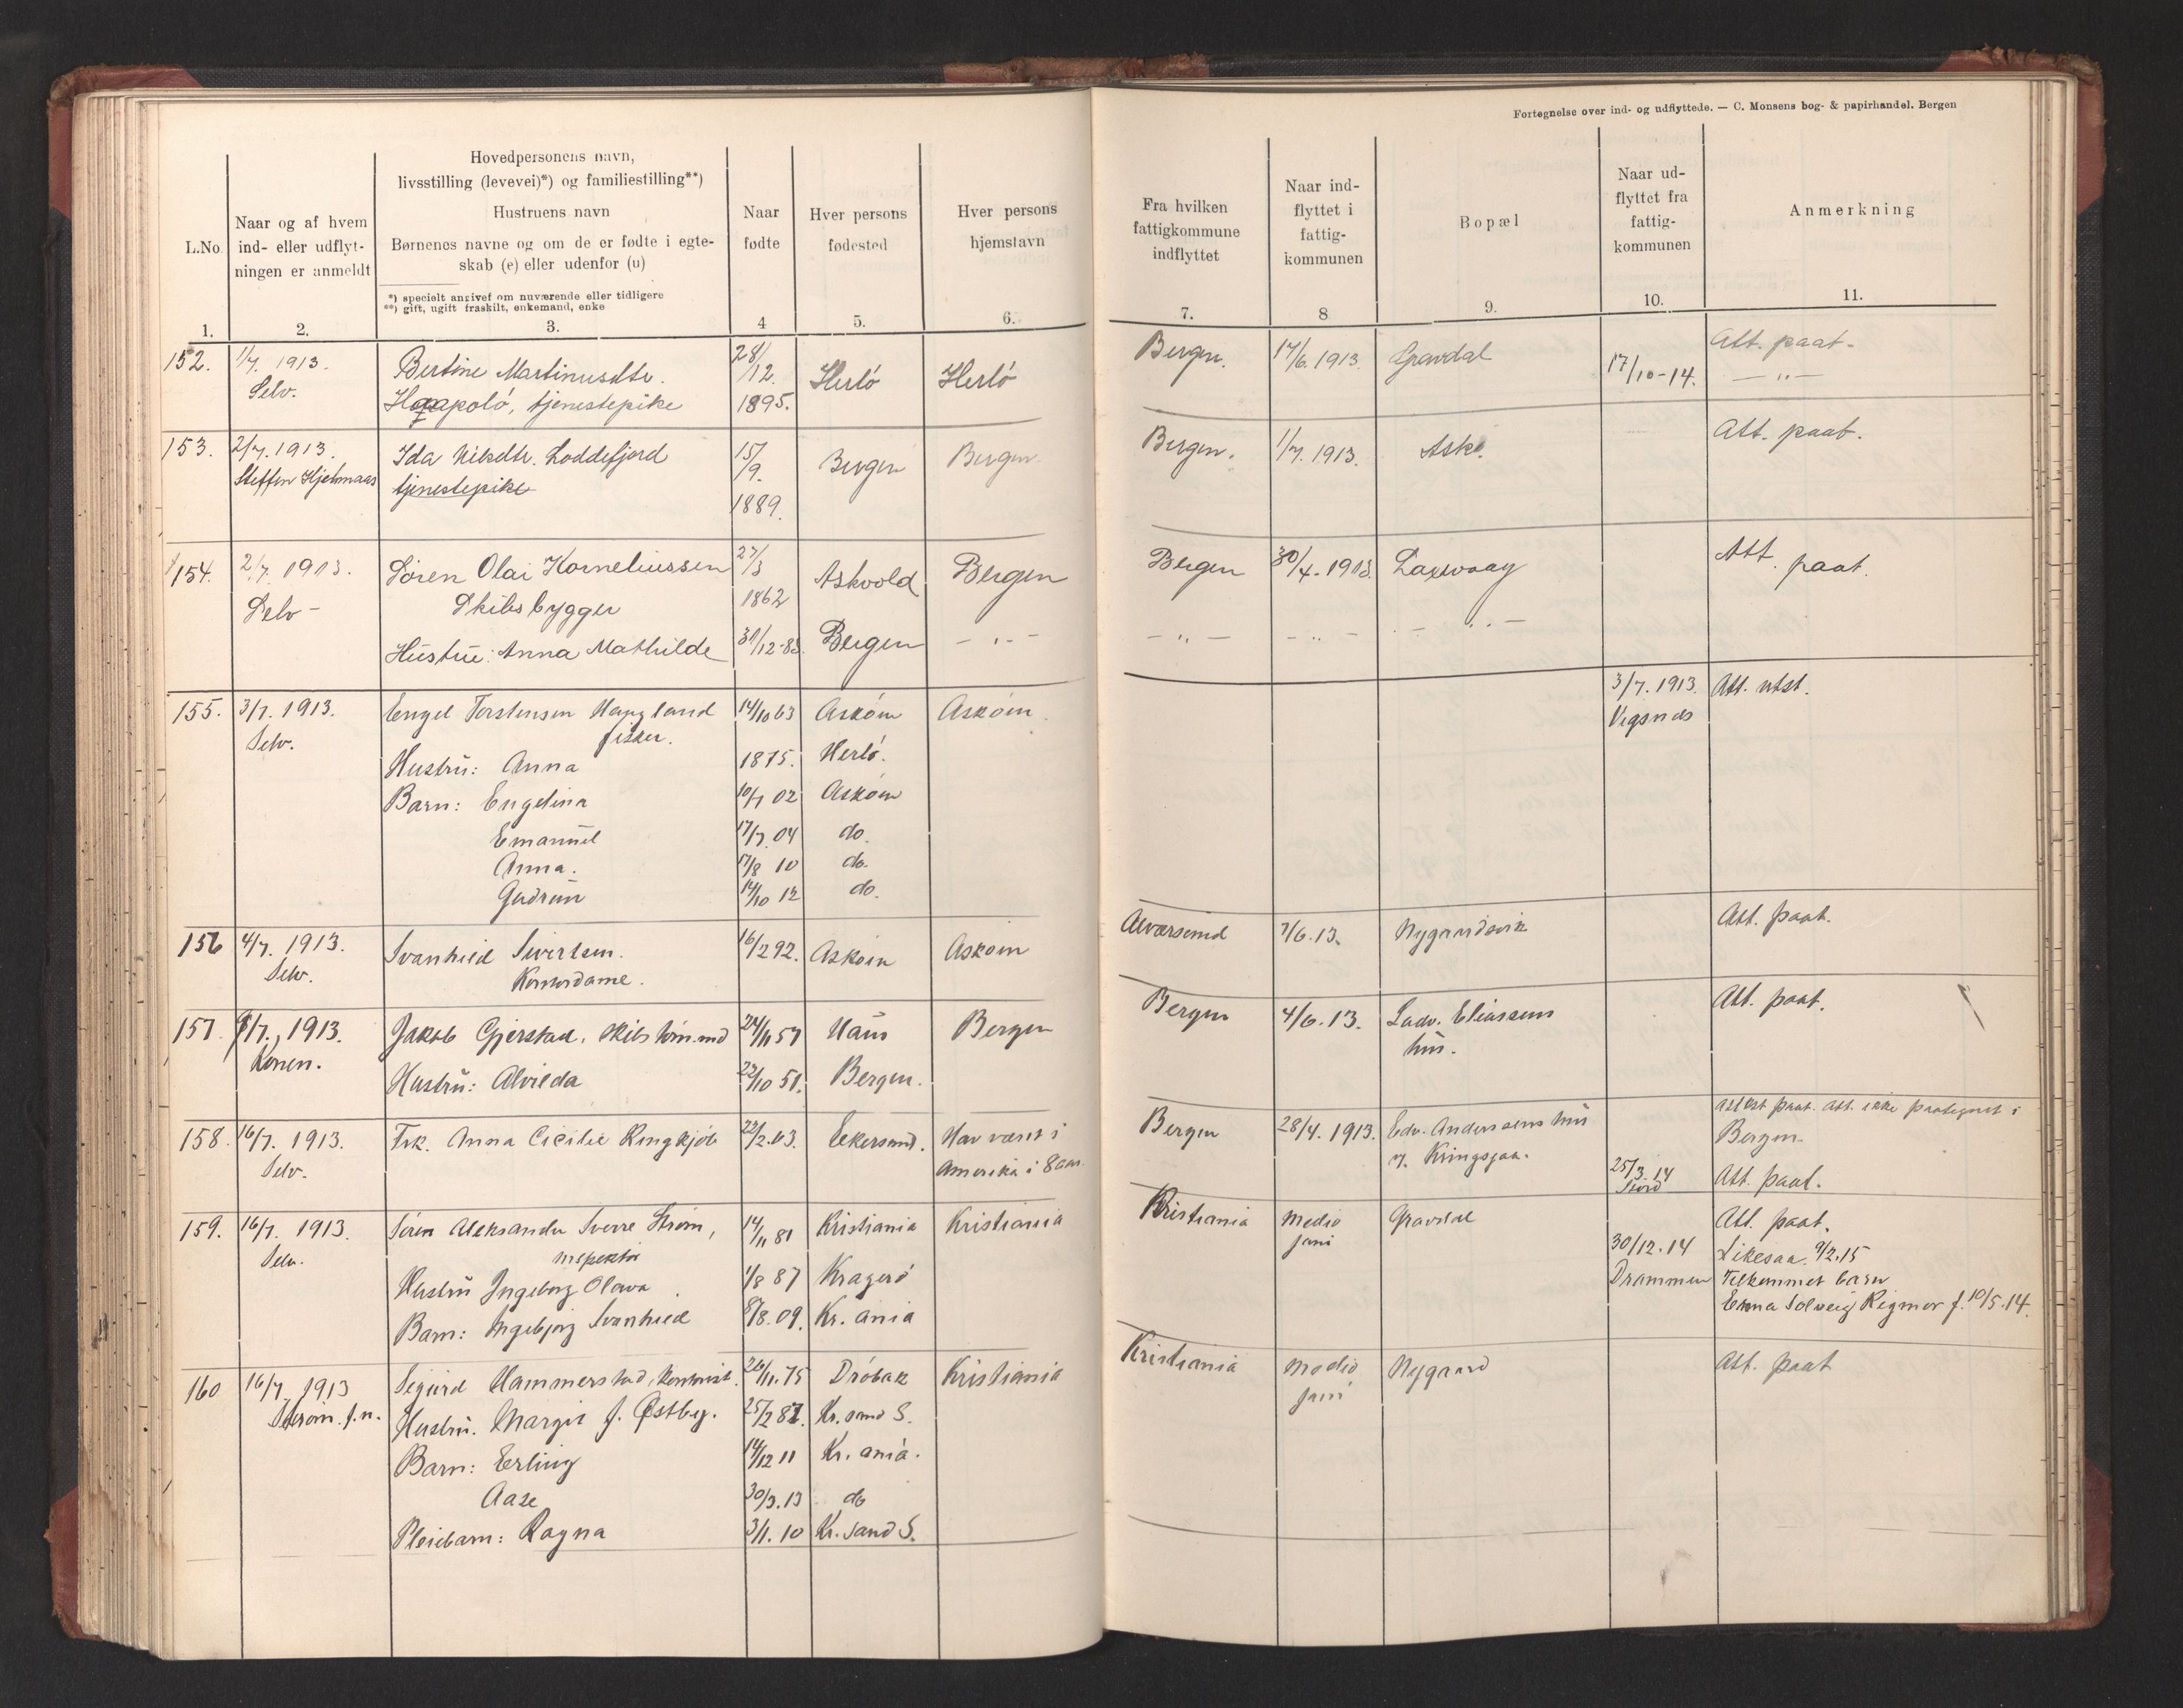 Fortegnelse over ind- og udflyttede. — C. Monsens bog- & papirhandel. Bergen
L.No.
Naar og af hvem
ind- eller udflyt-
ningen er anmeldt
Hovedpersonens navn,
livsstilling (levevei)*) og familiestilling**)
Hustruens navn
Børnenes navne og om de er fødte i egte-
skab (e) eller udenfor (u)
*) specielt angivet om nuværende eller tidligere
**) gift, ugift fraskilt, enkemand, enke
Naar
fødte
Hver persons
fødested
Hver persons
hjemstavn
Fra hvilken
fattigkommune
indflyttet
Naar ind-
flyttet i
fattig-
kommunen
Bopæl
Naar ud-
flyttet fra
fattig-
kommunen
Anmerkning
1. 2. 3. 4 5. 6. 7. 8 9. 10. 11.
152. 1/7. 1913. Bertine Martinusdtr. 28/12. Herlö Herlö Bergen. 17/6. 1913. Gravdal 17/10-14. Att. paat.
Selv. tjenestepike 1895. — „ —
153. 2/7. 1913. Ida Nilsdtr. Loddefjord 15/9. Bergen Bergen Bergen. 1/7. 1913. Ask. Att. paat.
Steffen Hjelmaas tjenestepike 1889.
154. 2/7. 1913. Sören Olai Korneliussen 27/3 Askvold Bergen Bergen 30/4. 1913. Laxevaag Att. paat.
Selv — Skibsbygger 1862
Hustru: Anna Mathilde 31/12-83. Bergen — „ — — „ — — „ — — „ —
155. 3/7. 1913. Engel Torstensen Haugland 14/10 63 Asköin Asköin. 3/7. 1913. Att. utst.
Selv. fisker. Vigsnes
Hustru: Anna 1875. Herlö.
Barn: Engelina 10/1 02 Asköin
Emanuel 17/7. 04 do.
Anna. 17/8 10 do.
Gudrun 14/10 12 do.
156 4/7. 1913. Svanhild Sivertsen. 16/2 92. Asköin Askoin Alversund 7/6. 13. Nygaardsvik Att. paat.
Selv. Kontordame.
157 9/7. 1913. Jakob Gjerstad, skibstömmerd 24/11 57 Haus Bergen Bergen 4/6. 13. Ludv. Eliassens Att. paat.
Konen. hus.
Hustru: Alvilda 22/10 51. Bergen.
158. 16/7. 1913. Frk. Anna Cicilie Ringkjöb 23/2. 63. Eekersund. Har været i Bergen 28/4. 1913. Edv. Anderssens hus attest paat. att. ikke paategnet i
Selv. Amerika i 8 aar. v. Kringsjaa. Bergen.
25/3. 14 Att. paat.
Stord
159. 16/7. 1913. Sören Aleksander Sverre Ström, 14/11 81 Kristiania Kristiania Kristiania Medio Gravdal Att. paat.
Selv. inspektör juni 30/12. 14 Likesaa. 9/2. 15
Hustru Ingeborg Olava 1/8 87 Kragerö Drammen Tilkommet barn
Barn: Ingebjorg Svanhild 8/8. 09. Kr. ania Erna Solveig Rigmor f. 10/5. 14.
160 16/7. 1913 Sigurd Hammerstad, kontorist. 26/11. 75 Dröbak Kristiania Kristiania Medio Nygaard Att. paat
Ström. f.n. juni
Hustru. Margit f. Østbg. 25/2 87. Kr. sand S.
Barn: Erling 14/12 11 Kr. ania.
Aase 30/3. 13 do
Pleiebarn: Ragna 3/1. 10 Kr. sand S.